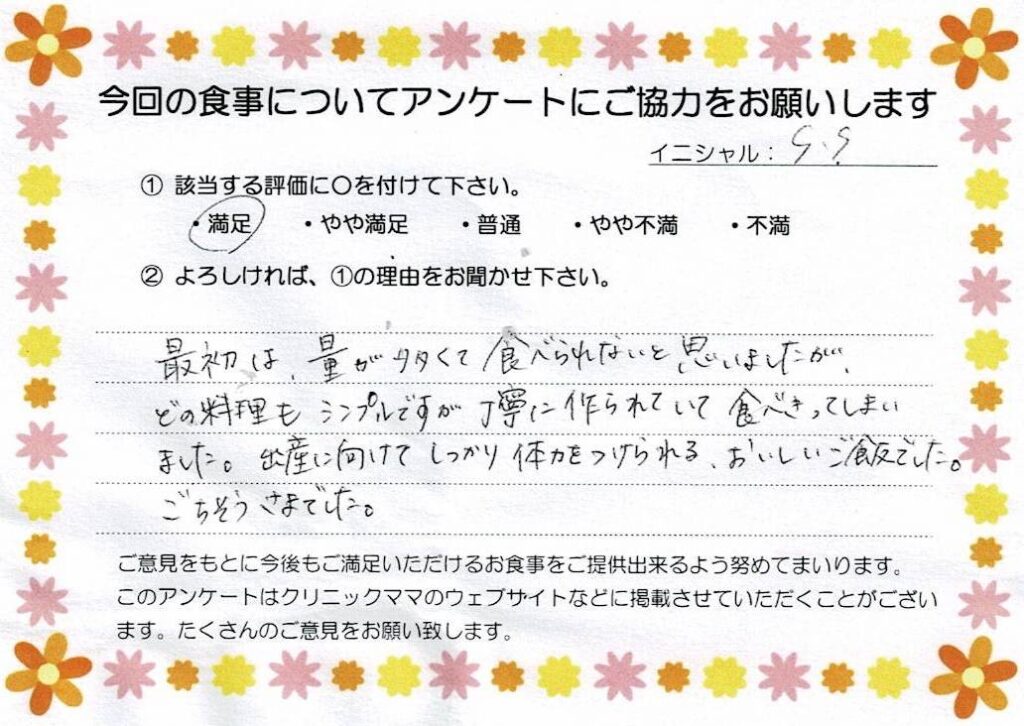 今回の食事についてアンケートにご協力をお願いします
イニシャル：
① 該当する評価に○を付けて下さい。
・満足 ・やや満足 ・普通 ・やや不満 ・不満
② よろしければ、①の理由をお聞かせ下さい。
最初は、量が多くて食べられないと思いましたが、
どの料理もシンプルですが丁寧に作られていて食べきってしまい
ました。出産に向けてしっかり体力をつけられる、おいしいご飯でした。
ごちそうさまでした。
ご意見をもとに今後もご満足いただけるお食事をご提供出来るよう努めてまいります。
このアンケートはクリニックママのウェブサイトなどに掲載させていただくことがござい
ます。たくさんのご意見をお願い致します。